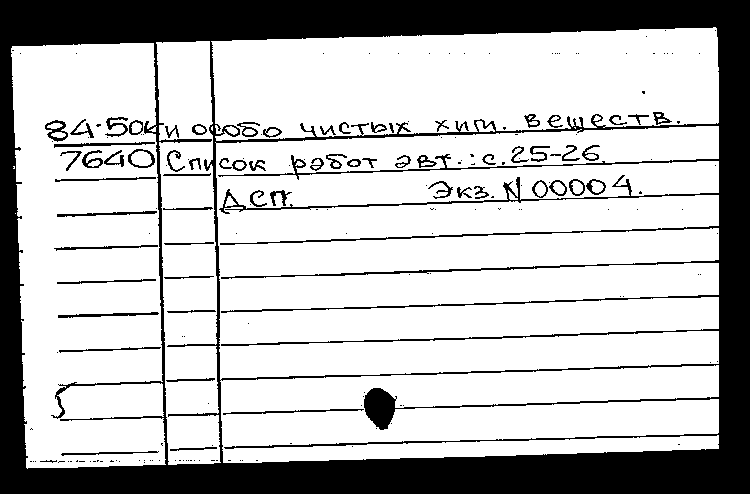 84-50ки особо чистых хим. веществ.
7640 Список работ авт.: с.25-26.
Дсп. Экз. N 00004.